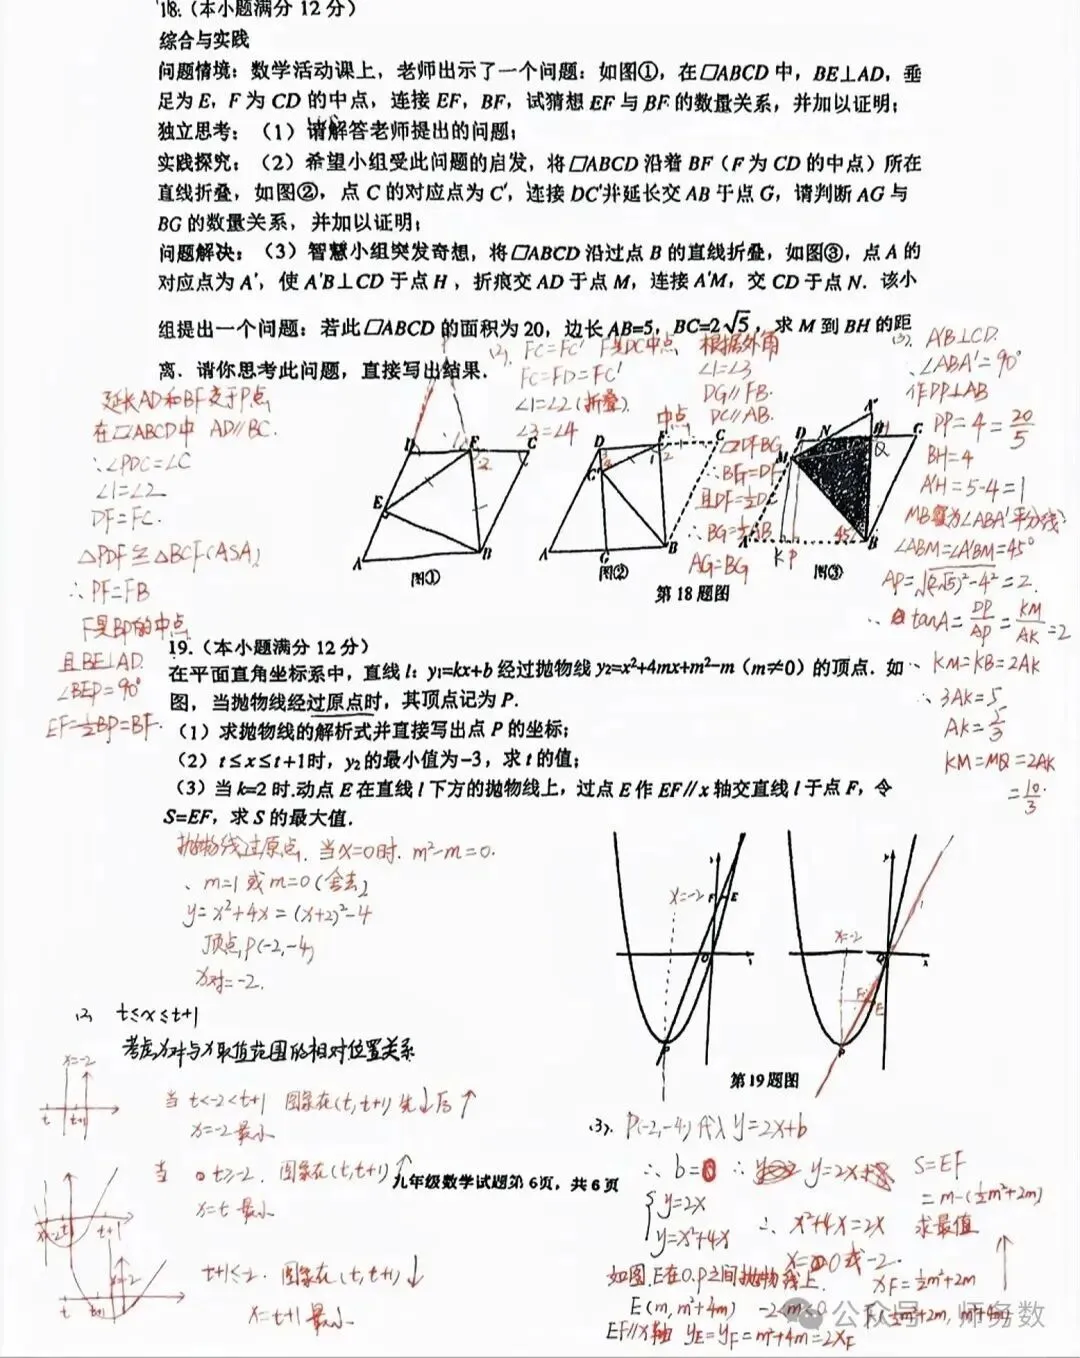 18.（本小题满分 12 分）
综合与实践
问题情境：数学活动课上，老师出示了一个问题：如图①，在▱ABCD 中，BE⊥AD，垂
足为 E，F 为 CD 的中点，连接 EF，BF，试猜想 EF 与 BF 的数量关系，并加以证明；
独立思考：（1）请解答老师提出的问题；
实践探究：（2）希望小组受此问题的启发，将▱ABCD 沿着 BF（F 为 CD 的中点）所在
直线折叠，如图②，点 C 的对应点为 C′，连接 DC′并延长交 AB 于点 G，请判断 AG 与
BG 的数量关系，并加以证明；
问题解决：（3）智慧小组突发奇想，将▱ABCD 沿过点 B 的直线折叠，如图③，点 A 的
对应点为 A′，使 A′B⊥CD 于点 H，折痕交 AD 于点 M，连接 A′M，交 CD 于点 N．该小
组提出一个问题：若此▱ABCD 的面积为 20，边长 AB=5，BC=2√5，求 M 到 BH 的距
离．请你思考此问题，直接写出结果．
延长AD和BF交于P点
在▱ABCD中 AD//BC.
∴∠PDC=∠C
∠1=∠2
DF=FC.
△PDF≌△BCF(ASA)
∴PF=FB
F是BP的中点
且BE⊥AD.
∠BEP=90°
EF=½BP=BF.
(2). FC=FC′ F是DC中点
FC=FD=FC′
∠1=∠2(折叠).
∠3=∠4
根据外角
∠1=∠3
DG//FB.
中点 DC//AB.
▱DFBG
∴BG=DF
且DF=½DC
∴BG=½AB.
AG=BG
(3). A′B⊥CD.
∠ABA′=90°
作DP⊥AB
DP=4=20/5
BH=4
A′H=5-4=1
MB为∠ABA′平分线
∠ABM=∠A′BM=45°
AP=√(2√5)²-4²=2.
∴tanA=DP/AP=KM/AK=2
∴KM=KB=2AK
∴3AK=5
AK=5/3
KM=MQ=2AK
=10/3
图①
图②
图③
第 18 题图
19.（本小题满分 12 分）
在平面直角坐标系中，直线 l：y₁=kx+b 经过抛物线 y₂=x²+4mx+m²−m（m≠0）的顶点．如
图，当抛物线经过原点时，其顶点记为 P．
（1）求抛物线的解析式并直接写出点 P 的坐标；
（2）t≤x≤t+1时，y₂的最小值为−3，求 t 的值；
（3）当 k=2 时.动点 E 在直线 l 下方的抛物线上，过点 E 作 EF∥x 轴交直线 l 于点 F，令
S=EF，求 S 的最大值．
抛物线过原点. 当x=0时. m²-m=0.
∴m=1 或 m=0(舍去)
y=x²+4x=(x+2)²-4
顶点P(-2,-4)
x对=-2.
x=-2
x=-2
第 19 题图
(2) t≤x≤t+1
考虑x对与x取值范围的相对位置关系
x=-2
当 t<-2<t+1 图象在(t,t+1) 先↓后↑
x=-2 最小
当 t≥-2. 图象在(t,t+1)↑
x=t 最小
t+1≤-2. 图象在(t,t+1)↓
x=t+1 最小
九年级数学试题第 6页，共 6 页
(3). P(-2,-4)代入 y=2x+b
∴b=0 ∴ y=2x
y=2x
y=x²+4x
∴x²+4x=2x
x=0或-2.
如图.E在O.P之间抛物线上.
E(m, m²+4m) -2<m<0
EF//x轴 yE=yF=m²+4m=2xF
S=EF
=m-(½m²+2m)
求最值
xF=½m²+2m
F(½m²+2m, m²+4m)
公众号·师务数